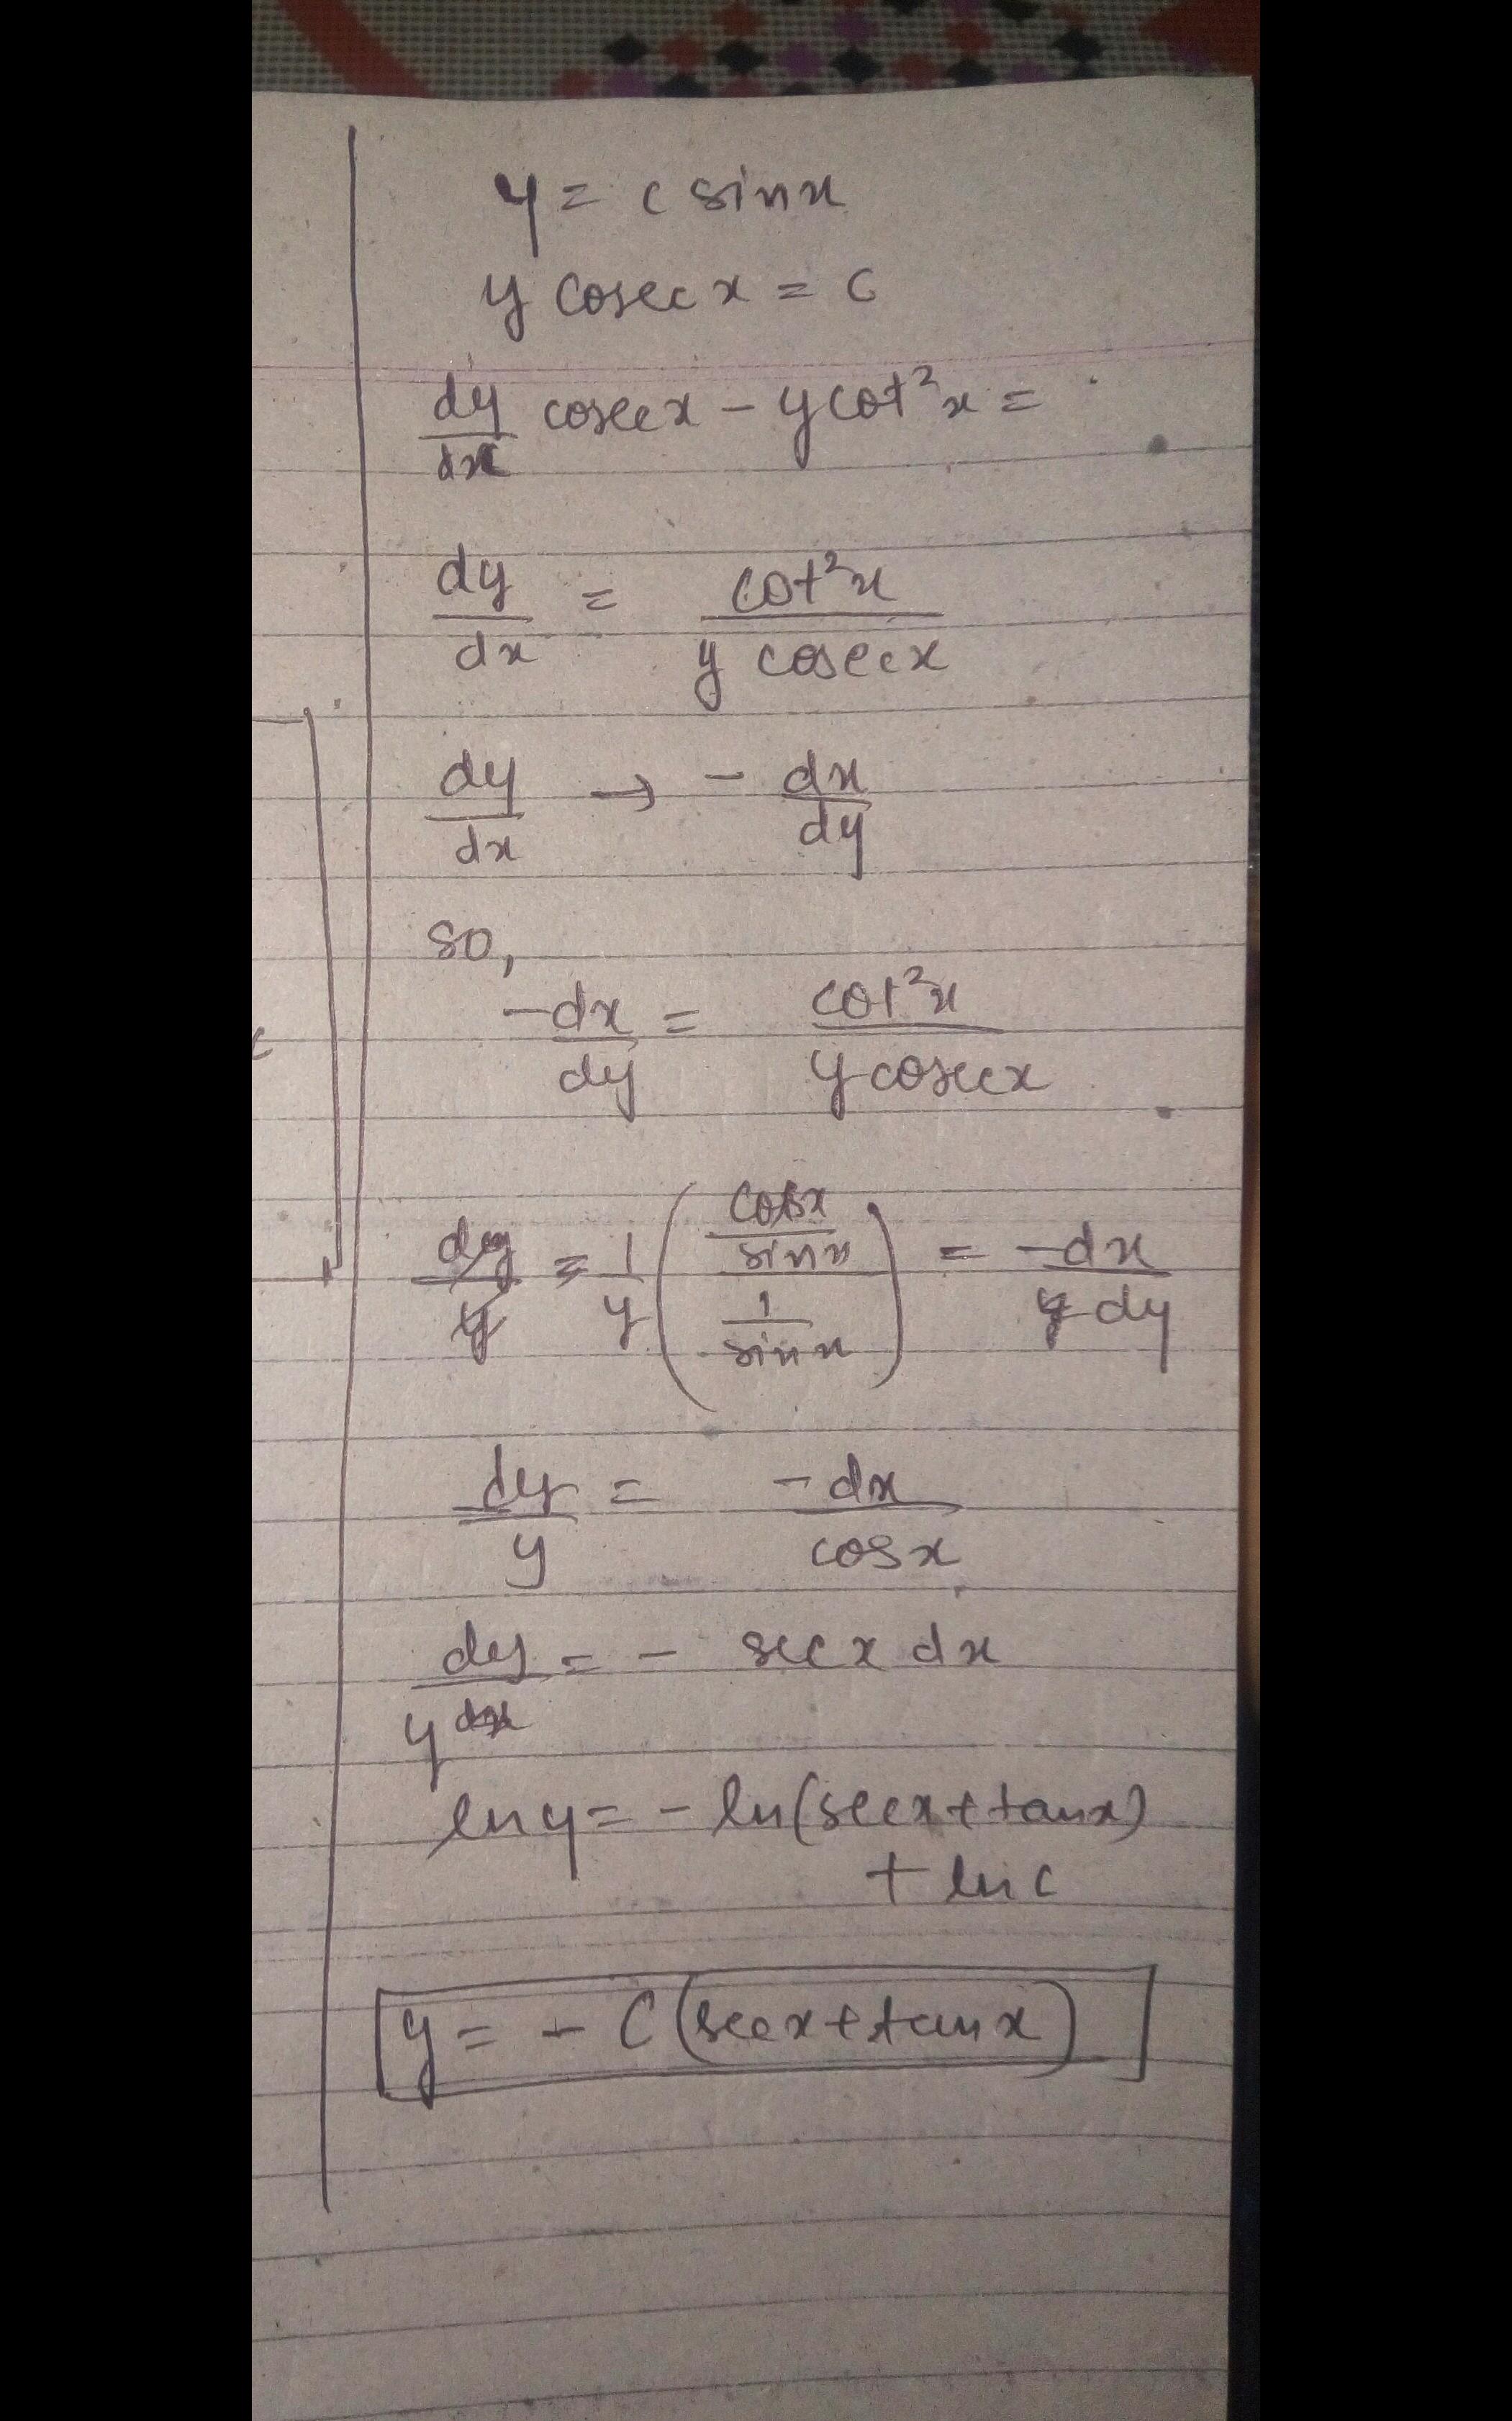 y = c sinx
y cosec x = c
dy/dx cosecx - y cot²x =
dy/dx = cot²x / y cosecx
dy/dx → - dx/dy
so,
-dx/dy = cot²x / y cosecx
1/y ( cosx/sinx / 1/sinx ) = -dx/dy
dy/y = -dx/cosx
dy/y = - secx dx
ln y = - ln(secx + tanx)
+ ln c
y = - C (secx + tanx)